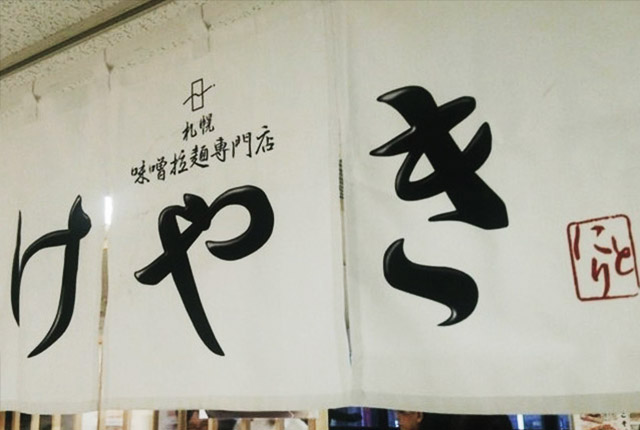 札幌
味噌拉麺専門店
けやき
にとり